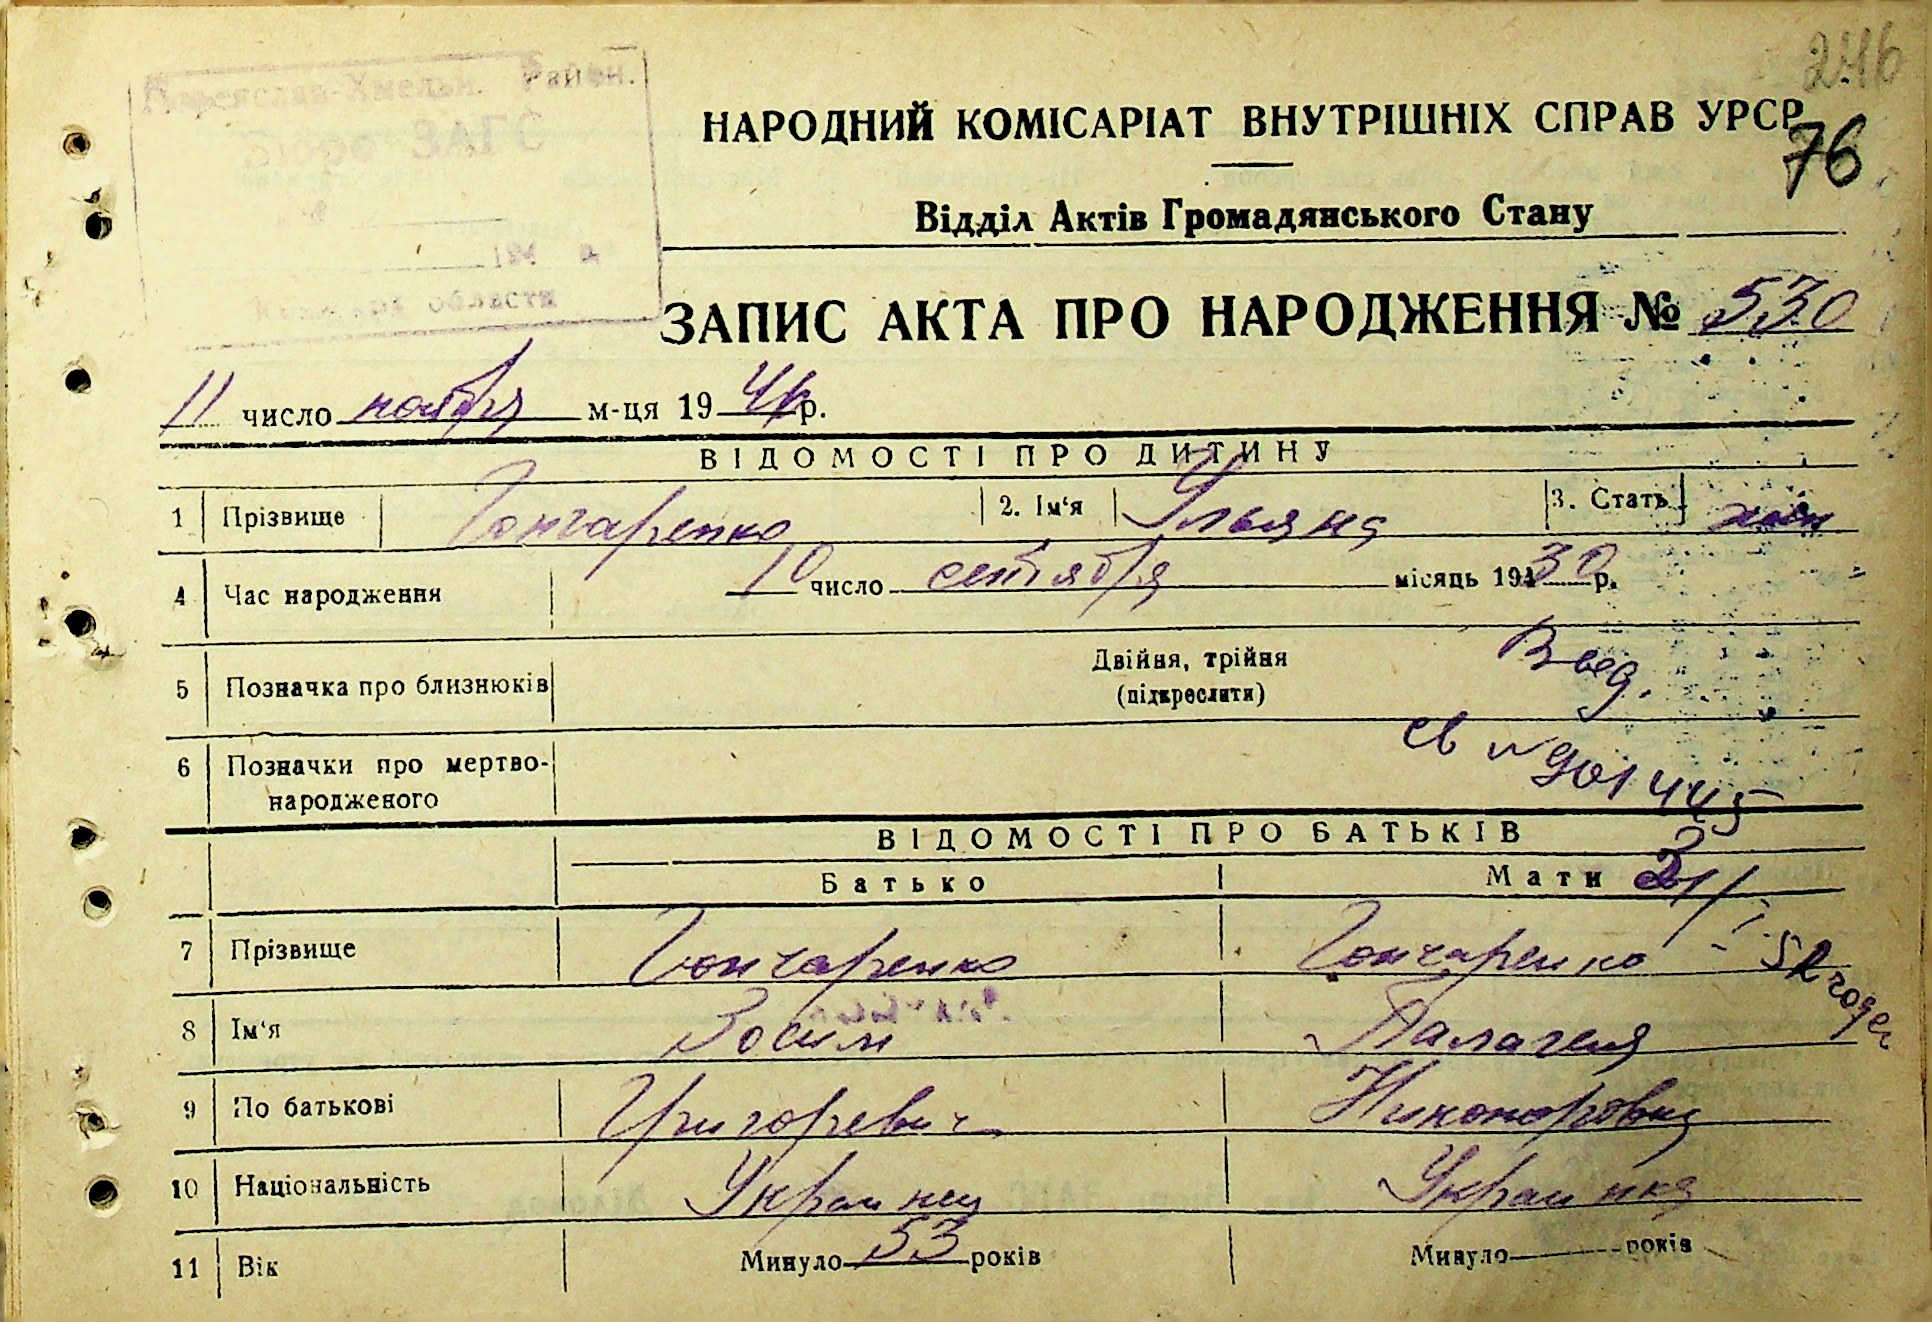 246
76
Район.
Бюро ЗАГС
области
НАРОДНИЙ КОМІСАРІАТ ВНУТРІШНІХ СПРАВ УРСР
Відділ Актів Громадянського Стану
ЗАПИС АКТА ПРО НАРОДЖЕННЯ № 530
11 число ноября м-ця 19 р.
ВІДОМОСТІ ПРО ДИТИНУ
1 Прізвище Гончаренко 2. Ім'я Ульяна 3. Стать жен
4 Час народження 10 число сентября місяць 1930 р.
5 Позначка про близнюків Двійня, трійня
(підкреслити)
Выд.
6 Позначки про мертво-
народженого
св №901445
ВІДОМОСТІ ПРО БАТЬКІВ
Батько Мати
7 Прізвище Гончаренко Гончаренко
8 Ім'я Зосим Палагея
9 По батькові Григоревич Никоноровна
10 Національність Украинец Украинка
11 Вік Минуло 53 років Минуло років